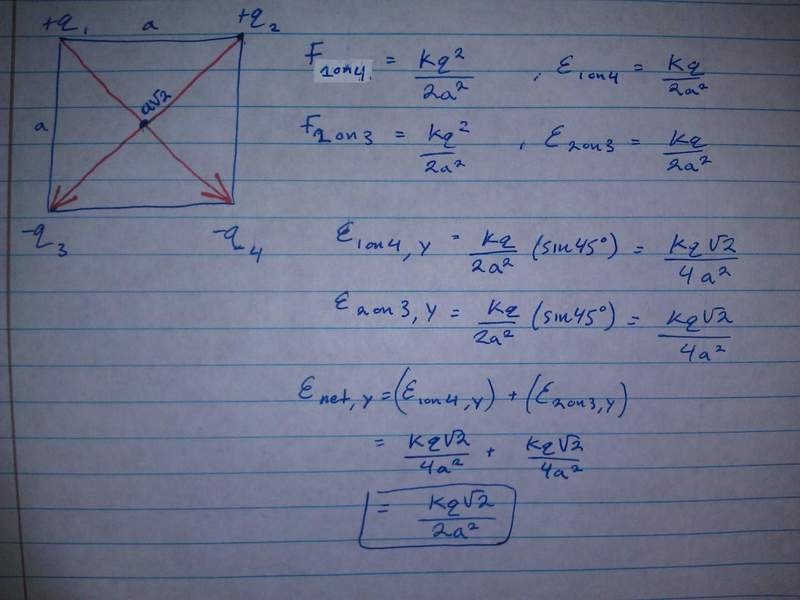 +q₁ a +q₂
a a√2
-q₃ -q₄
F₁ₒₙ₄ = kq²/2a² , Ɛ₁ₒₙ₄ = kq/2a²
F₂ₒₙ₃ = kq²/2a² , Ɛ₂ₒₙ₃ = kq/2a²
Ɛ₁ₒₙ₄,y = kq/2a² (sin45°) = kq√2/4a²
Ɛ₂ₒₙ₃,y = kq/2a² (sin45°) = kq√2/4a²
Ɛnet,y = (Ɛ₁ₒₙ₄,y) + (Ɛ₂ₒₙ₃,y)
= kq√2/4a² + kq√2/4a²
= kq√2/2a²